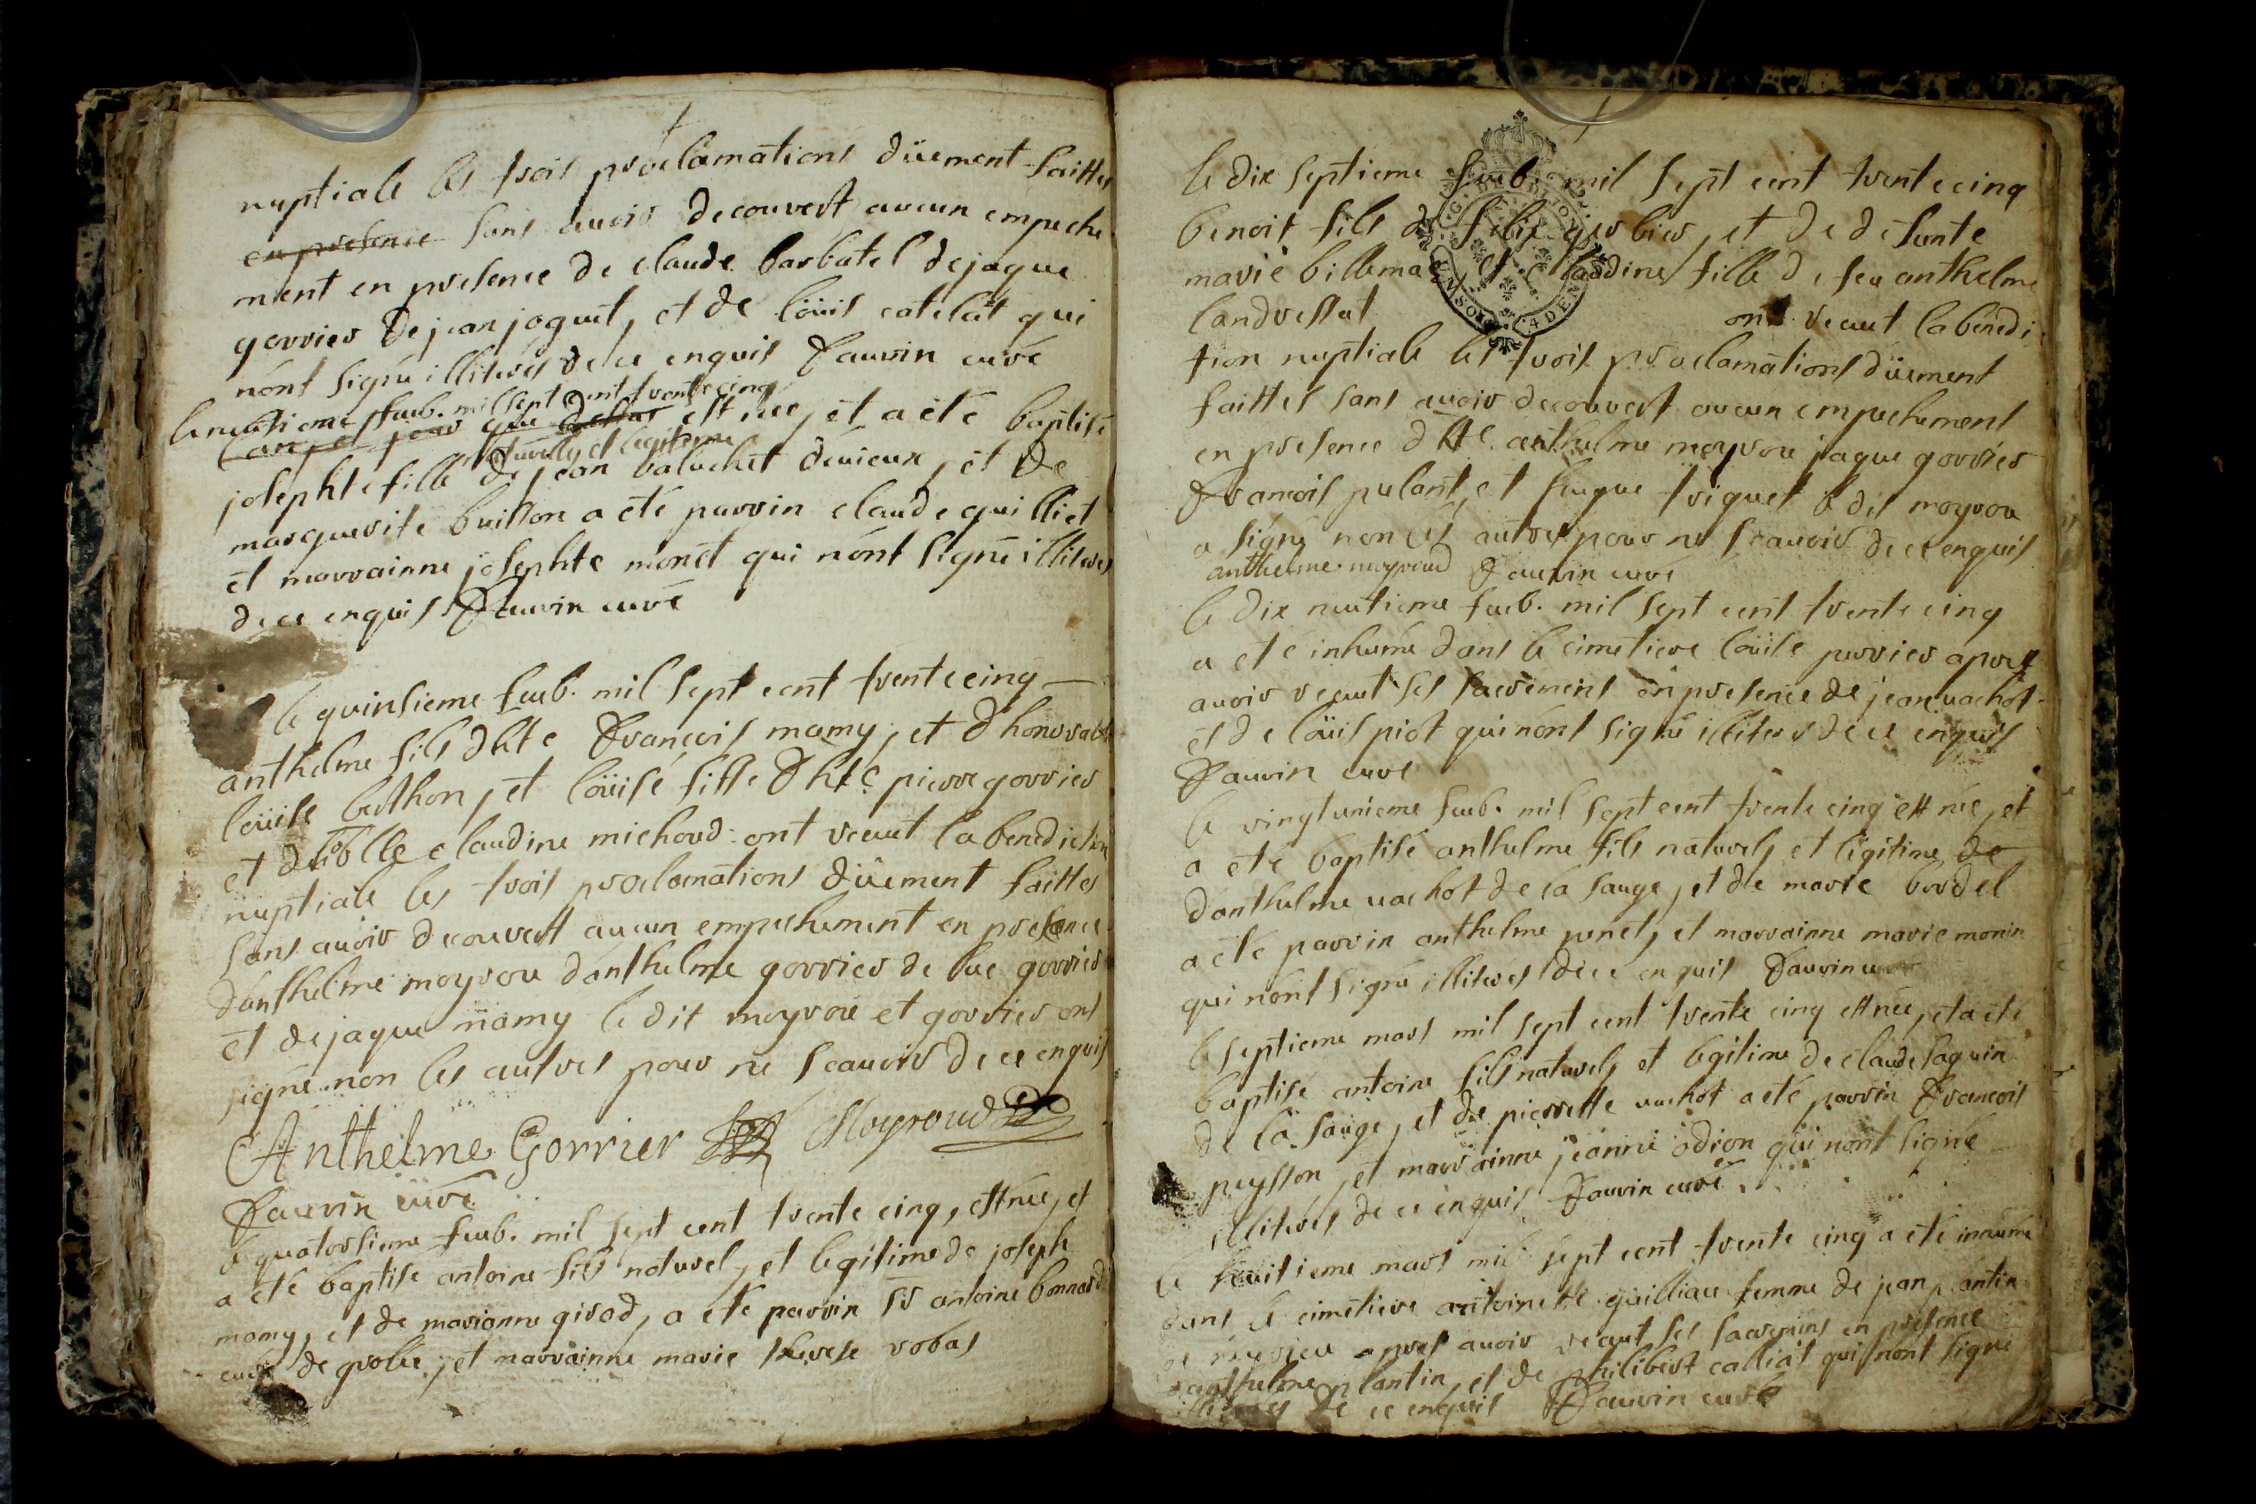 nuptiale les trois proclamations düement faittes
en presence sans avoir decouvert aucun empeche
ment en presence de claude barbatel de jaque
gorrier de jean joguet, et de loüis catelat qui
nont signé illiteres de ce enquis Fauvin curé
le neutieme feub. mil sept cent trente cinq
l'an, et jour que dessus est nee, et a eté baptisé
naturelle, et legitime
josephte fille de jean baluchet devieux, et de
marguerite buisson a eté parrin claude guilliet
et marrainne josephte monet qui nont signé illiteres
de ce enquis Fauvin curé
le quinsieme feub. mil sept cent trente cinq
anthelme fils dhte François mamy, et dhonorable
loüise berthon, et loüise fille dhte pierre gorrier
et claudine michoud ont receut la benediction
nuptiale les trois proclamations düement faittes
sans avoir decouvert aucun empechement en presence
danthelme moyrou danthelme gorrier de luc gorrier
et de jaque mamy le dit moyrou et gorrier ont
signé non les autres pour ne scavoir de ce enquis
Anthelme Gorrier Moyroud
Fauvin curé
le quatorsieme feub. mil sept cent trente cinq, est née, et
a eté baptisé antoine fils naturel, et legitime de joseph
mamy, et de marianne girod, a eté parrin sr antoine bonnard
curé de grolée, et marrainne marie therese robas
le dix septieme feub. mil sept cent trente cinq
benoit fils de felix gerbier, et de defunte
marie billemaz, et claudine fille de feu anthelme
landressat ont receut la benedi
tion nuptiale les trois proclamations düement
faittes sans avoir decouvert aucun empechement
en presence dhte anthelme moyrou jaque gorrier
François pelant, et hugue triquet le dit moyrou
a signé non les autres pour ne scavoir de ce enquis
anthelme moyroud Fauvin curé
le dix neutieme feub. mil sept cent trente cinq
a eté inhumé dans le cimetiere loüise perrier apres
avoir receut ses sacremens en presence de jean vachot
et de loüis piot qui nont signé illiteres de ce enquis
Fauvin curé
le vingt unieme feub. mil sept cent trente cinq est née, et
a eté baptisé anthelme fils naturel, et legitime de
danthelme vachot de la sauge, et de marie bordel
a eté parrin anthelme penet, et marrainne marie monin
qui nont signé illiteres de ce enquis Fauvin curé
le septieme mars mil sept cent trente cinq est née, et a eté
baptisé antoine fils naturel, et legitime de claude paquin
de la sauge, et de pierrette vachot a eté parrin François
peysson, et marrainne jeanne odion qui nont signé
illiteres de ce enquis Fauvin curé
le huitieme mars mil sept cent trente cinq a eté inhumé
dans le cimetiere antoinette guilliau femme de jean plantin
de apres avoir receut ses sacremens en presence
danthelme plantin, et de philibert calliat qui nont signé
illiteres de ce enquis Fauvin curé